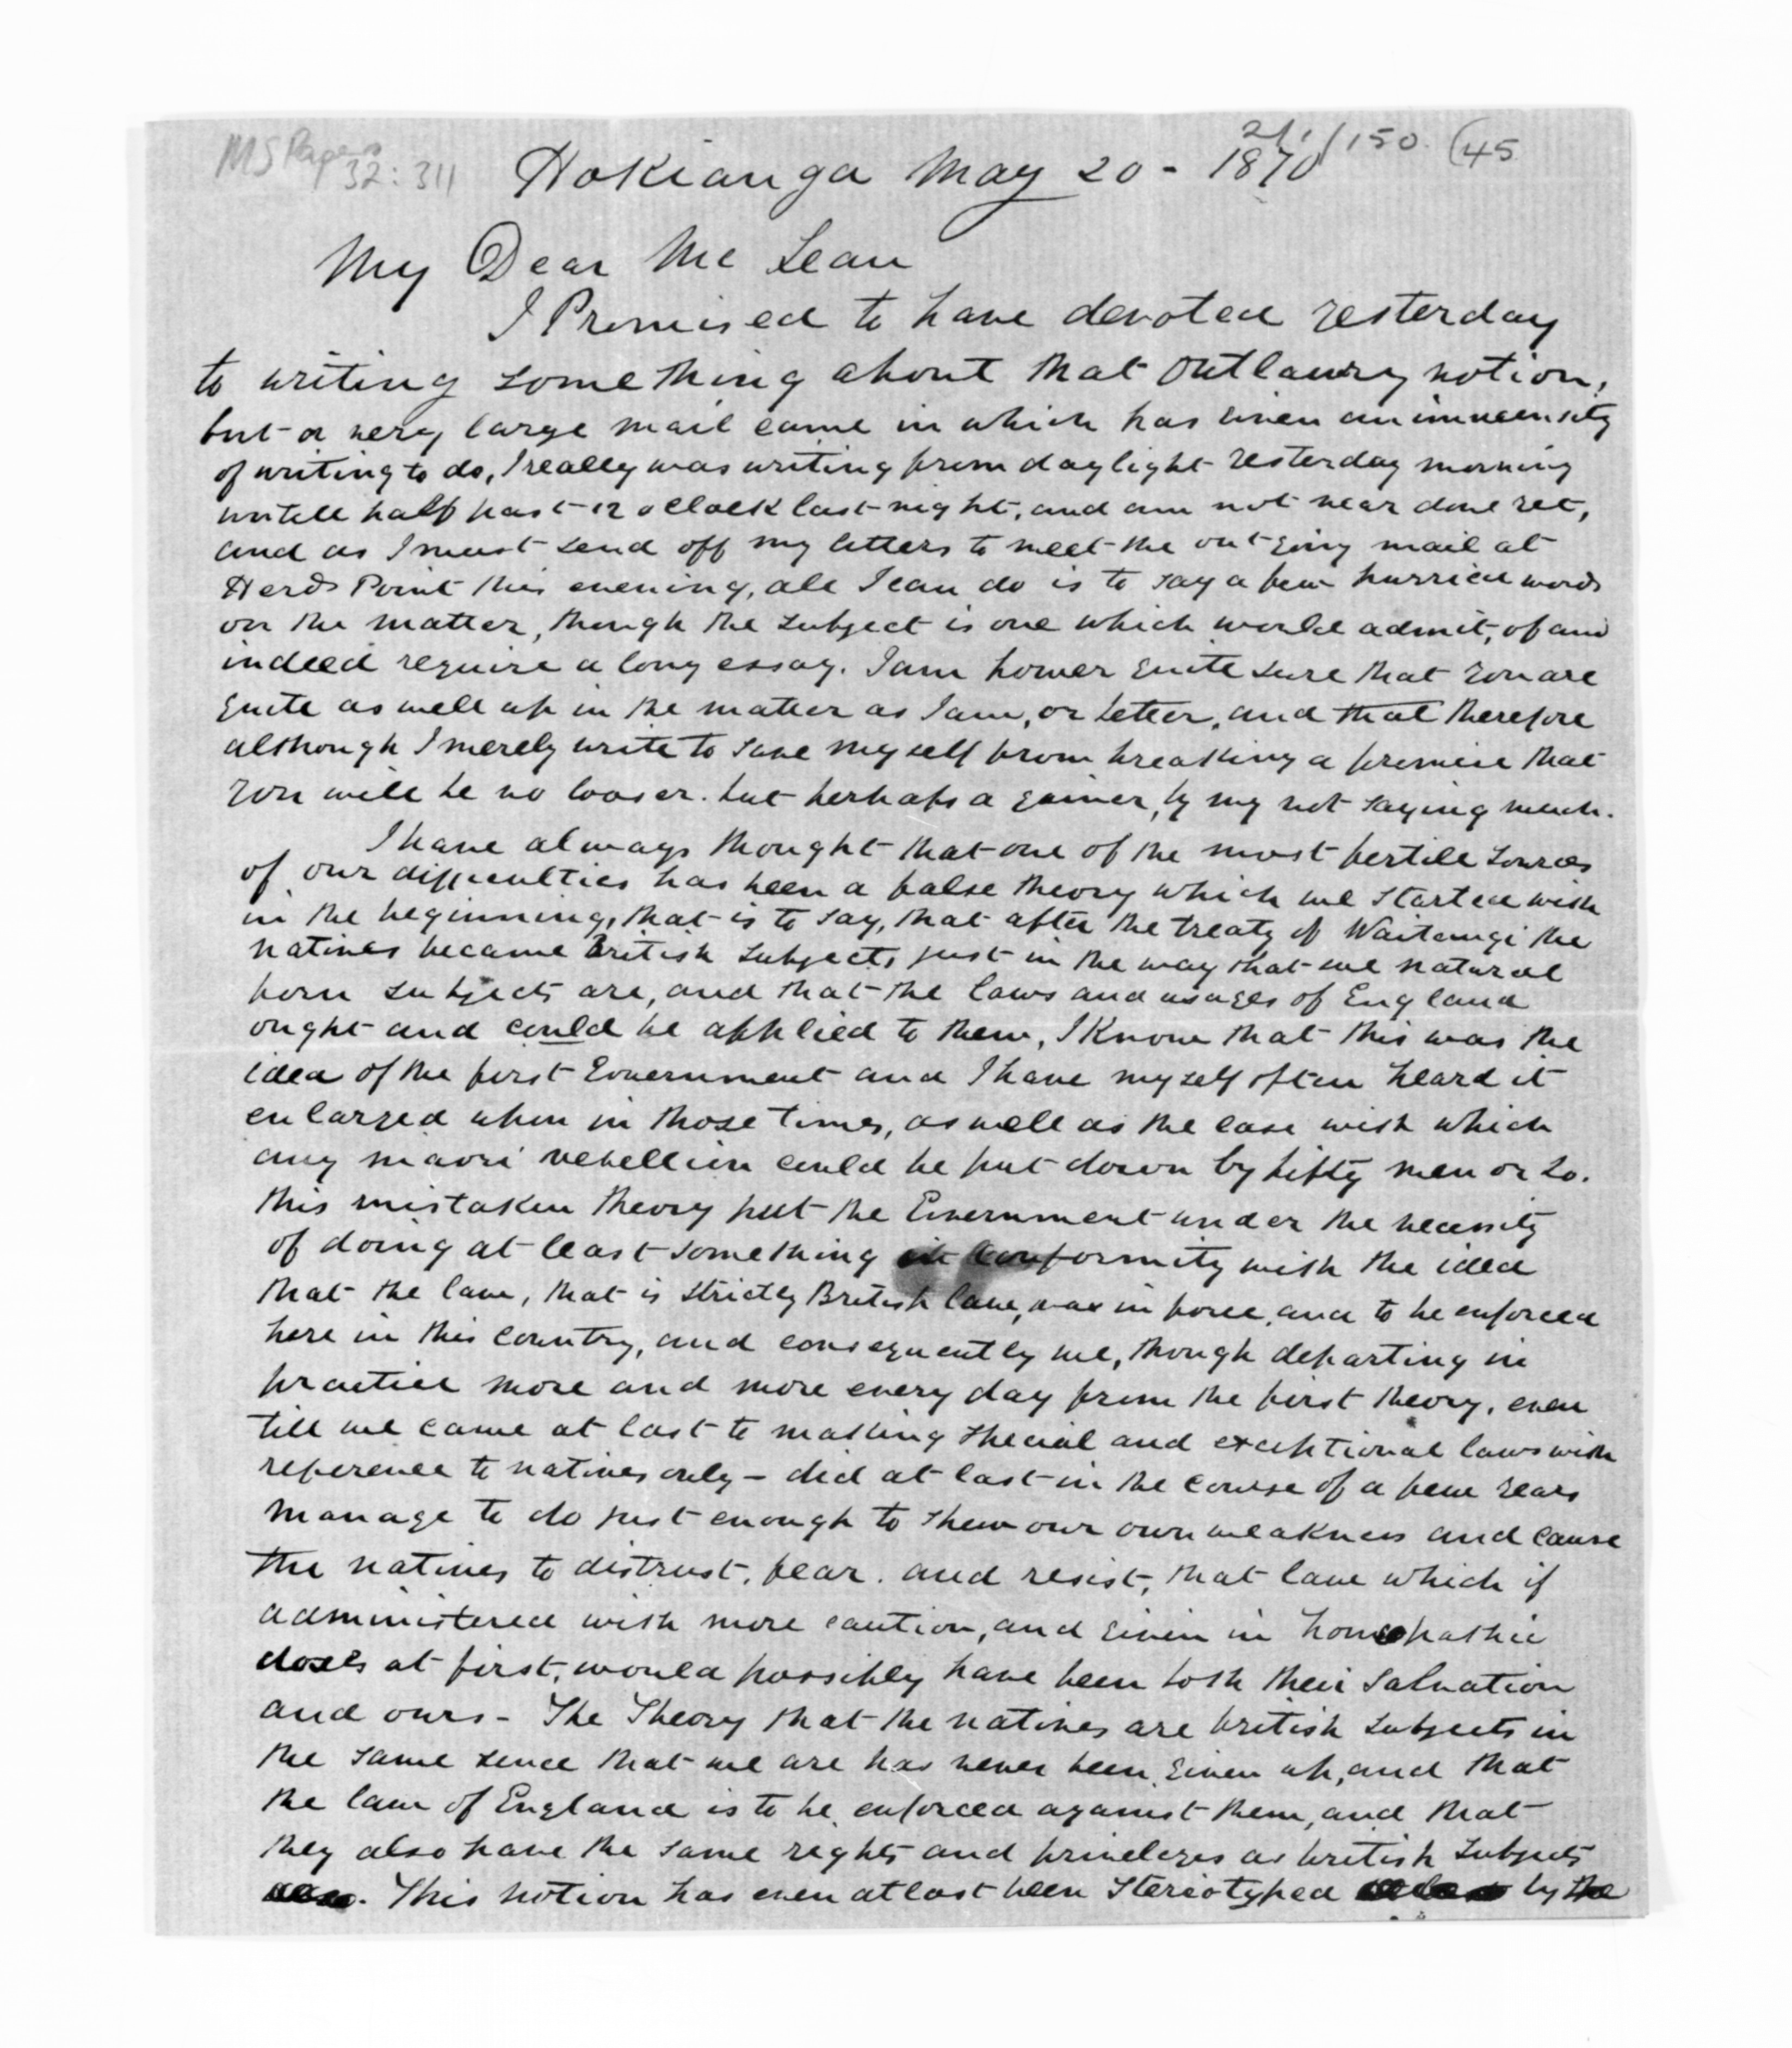 MS Papers 32:311
21/150. (45
Hokianga May 20 - 1870
My Dear Mc Lean
I Promised to have devoted yesterday
to writing something about that outlawry notion,
but a very large mail came in which has given an immensity
of writing to do, I really was writing from daylight yesterday morning
untill half past 12 oclock last night, and am not near done yet,
and as I must send off my letters to meet the outgoing mail at
Herds Point this evening, all I can do is to say a few hurried words
on the matter, though the subject is one which would admit, of and
indeed require a long essay. I am hower quite sure that you are
quite as well up in the matter as I am, or better, and that therefore
although I merely write to save myself from breaking a promise that
you will be no looser. but perhaps a gainer, by my not saying much.
I have always thought that one of the most fertile sources
of our difficulties has been a false theory which we started with
in the beginning, that is to say, that after the treaty of Waitangi the
natives became British subjects just in the way that we natural
born subjects are, and that the laws and usages of England
ought and could be applied to them, I know that this was the
idea of the first Government and I have myself often heard it
enlarged upon in those times, as well as the ease with which
any maori rebellion could be put down by fifty men or so.
this mistaken theory put the Government under the necessity
of doing at least something in conformity with the idea
that the law, that is strictly British law, was in force, and to be enforced
here in this country, and consequently we, though departing in
practice more and more every day from the first theory, even
till we came at last to making special and exceptional laws with
reference to natives only - did at last in the course of a few years
manage to do just enough to shew our own weakness and cause
the natives to distrust, fear. and resist, that law which if
administered with more caution, and given in homeopathic
doses at first, would possibly have been both their salvation
and ours - The Theory that the natives are british subjects in
the same sence that we are has never been given up, and that
the law of England is to be enforced against them, and that
they also have the same rights and priveleges as british subjects
. This notion has even at last been stereotyped by the